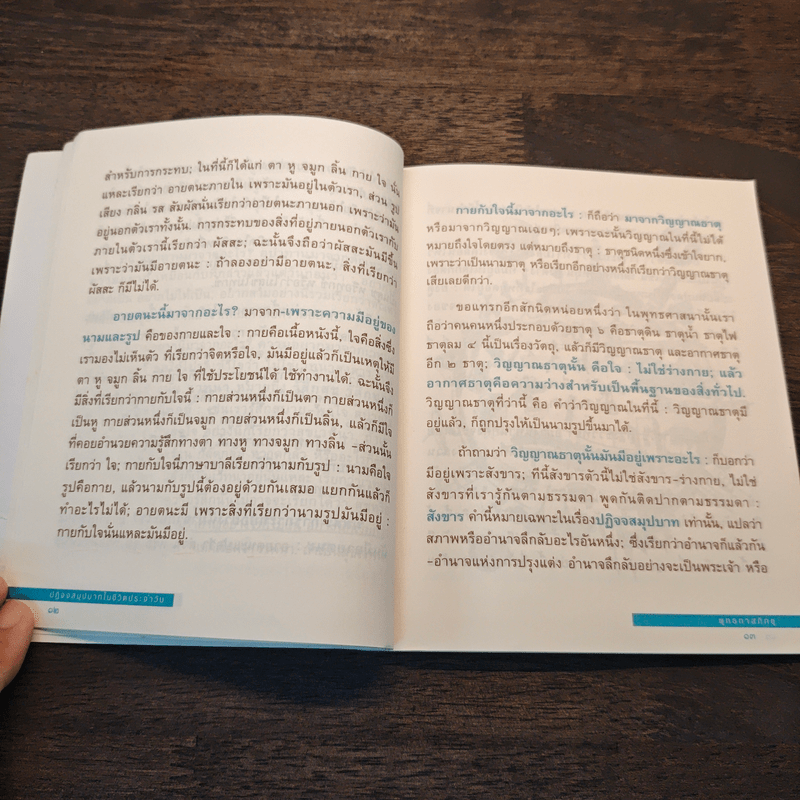 สำหรับการกระทบ; ในที่นี้ก็ได้แก่ ตา หู จมูก ลิ้น กาย ใจ นั่น
แหละเรียกว่า อายตนะภายใน เพราะมันอยู่ในตัวเรา, ส่วน รูป
เสียง กลิ่น รส สัมผัสนั่นเรียกว่าอายตนะภายนอก เพราะว่ามัน
อยู่นอกตัวเราทั้งนั้น. การกระทบของสิ่งที่อยู่ภายนอกตัวเรากับ
ภายในตัวเรานี้เรียกว่า ผัสสะ; ฉะนั้นจึงถือว่าผัสสะมันมีขึ้น
เพราะว่ามันมีอายตนะ : ถ้าลองอย่ามีอายตนะ, สิ่งที่เรียกว่า
ผัสสะ ก็มีไม่ได้.
อายตนะนี้มาจากอะไร? มาจาก-เพราะความมีอยู่ของ
นามและรูป คือของกายและใจ : กายคือเนื้อหนังนี้, ใจคือสิ่งซึ่ง
เรามองไม่เห็นตัว ที่เรียกว่าจิตหรือใจ, มันมีอยู่แล้วก็เป็นเหตุให้มี
ตา หู จมูก ลิ้น กาย ใจ ที่ใช้ประโยชน์ได้ ใช้ทำงานได้. ฉะนั้นจึง
มีสิ่งที่เรียกว่ากายกับใจนี้ : กายส่วนหนึ่งก็เป็นตา กายส่วนหนึ่งก็
เป็นหู กายส่วนหนึ่งก็เป็นจมูก กายส่วนหนึ่งก็เป็นลิ้น, แล้วก็มีใจ
ที่คอยอำนวยความรู้สึกทางตา ทางหู ทางจมูก ทางลิ้น -ส่วนนั้น
เรียกว่า ใจ; กายกับใจนี่ภาษาบาลีเรียกว่านามกับรูป : นามคือใจ
รูปคือกาย, แล้วนามกับรูปนี้ต้องอยู่ด้วยกันเสมอ แยกกันแล้วก็
ทำอะไรไม่ได้; อายตนะมี เพราะสิ่งที่เรียกว่านามรูปมันมีอยู่ :
กายกับใจนั่นแหละมันมีอยู่.
ปฏิจจสมุปบาทในชีวิตประจำวัน
๑๒
กายกับใจนี้มาจากอะไร : ก็ถือว่า มาจากวิญญาณธาตุ
หรือมาจากวิญญาณเฉยๆ; เพราะฉะนั้นวิญญาณในที่นี้ไม่ได้
หมายถึงใจโดยตรง แต่หมายถึงธาตุ : ธาตุชนิดหนึ่งซึ่งเข้าใจยาก,
เพราะว่าเป็นนามธาตุ หรือเรียกอีกอย่างหนึ่งก็เรียกว่าวิญญาณธาตุ
เสียเลยดีกว่า.
ขอแทรกอีกสักนิดหน่อยหนึ่งว่า ในพุทธศาสนานั้นเรา
ถือว่าคนคนหนึ่งประกอบด้วยธาตุ ๖ คือธาตุดิน ธาตุน้ำ ธาตุไฟ
ธาตุลม ๔ นี้เป็นเรื่องวัตถุ, แล้วก็มีวิญญาณธาตุ และอากาศธาตุ
อีก ๒ ธาตุ; วิญญาณธาตุนั้น คือใจ : ไม่ใช่ร่างกาย; แล้ว
อากาศธาตุคือความว่างสำหรับเป็นพื้นฐานของสิ่งทั่วไป.
วิญญาณธาตุที่ว่านี้ คือ คำว่าวิญญาณในที่นี้ : วิญญาณธาตุมี
อยู่แล้ว, ก็ถูกปรุงให้เป็นนามรูปขึ้นมาได้.
ถ้าถามว่า วิญญาณธาตุนั้นมันมีอยู่เพราะอะไร : ก็บอกว่า
มีอยู่เพราะสังขาร; ทีนี้สังขารตัวนี้ไม่ใช่สังขาร-ร่างกาย, ไม่ใช่
สังขารที่เรารู้กันตามธรรมดา พูดกันติดปากตามธรรมดา :
สังขาร คำนี้หมายเฉพาะในเรื่องปฏิจจสมุปบาท เท่านั้น, แปลว่า
สภาพหรืออำนาจลึกลับอะไรอันหนึ่ง; ซึ่งเรียกว่าอำนาจก็แล้วกัน
-อำนาจแห่งการปรุงแต่ง อำนาจลึกลับอย่างจะเป็นพระเจ้า หรือ
พุทธทาสภิกขุ
๑๓